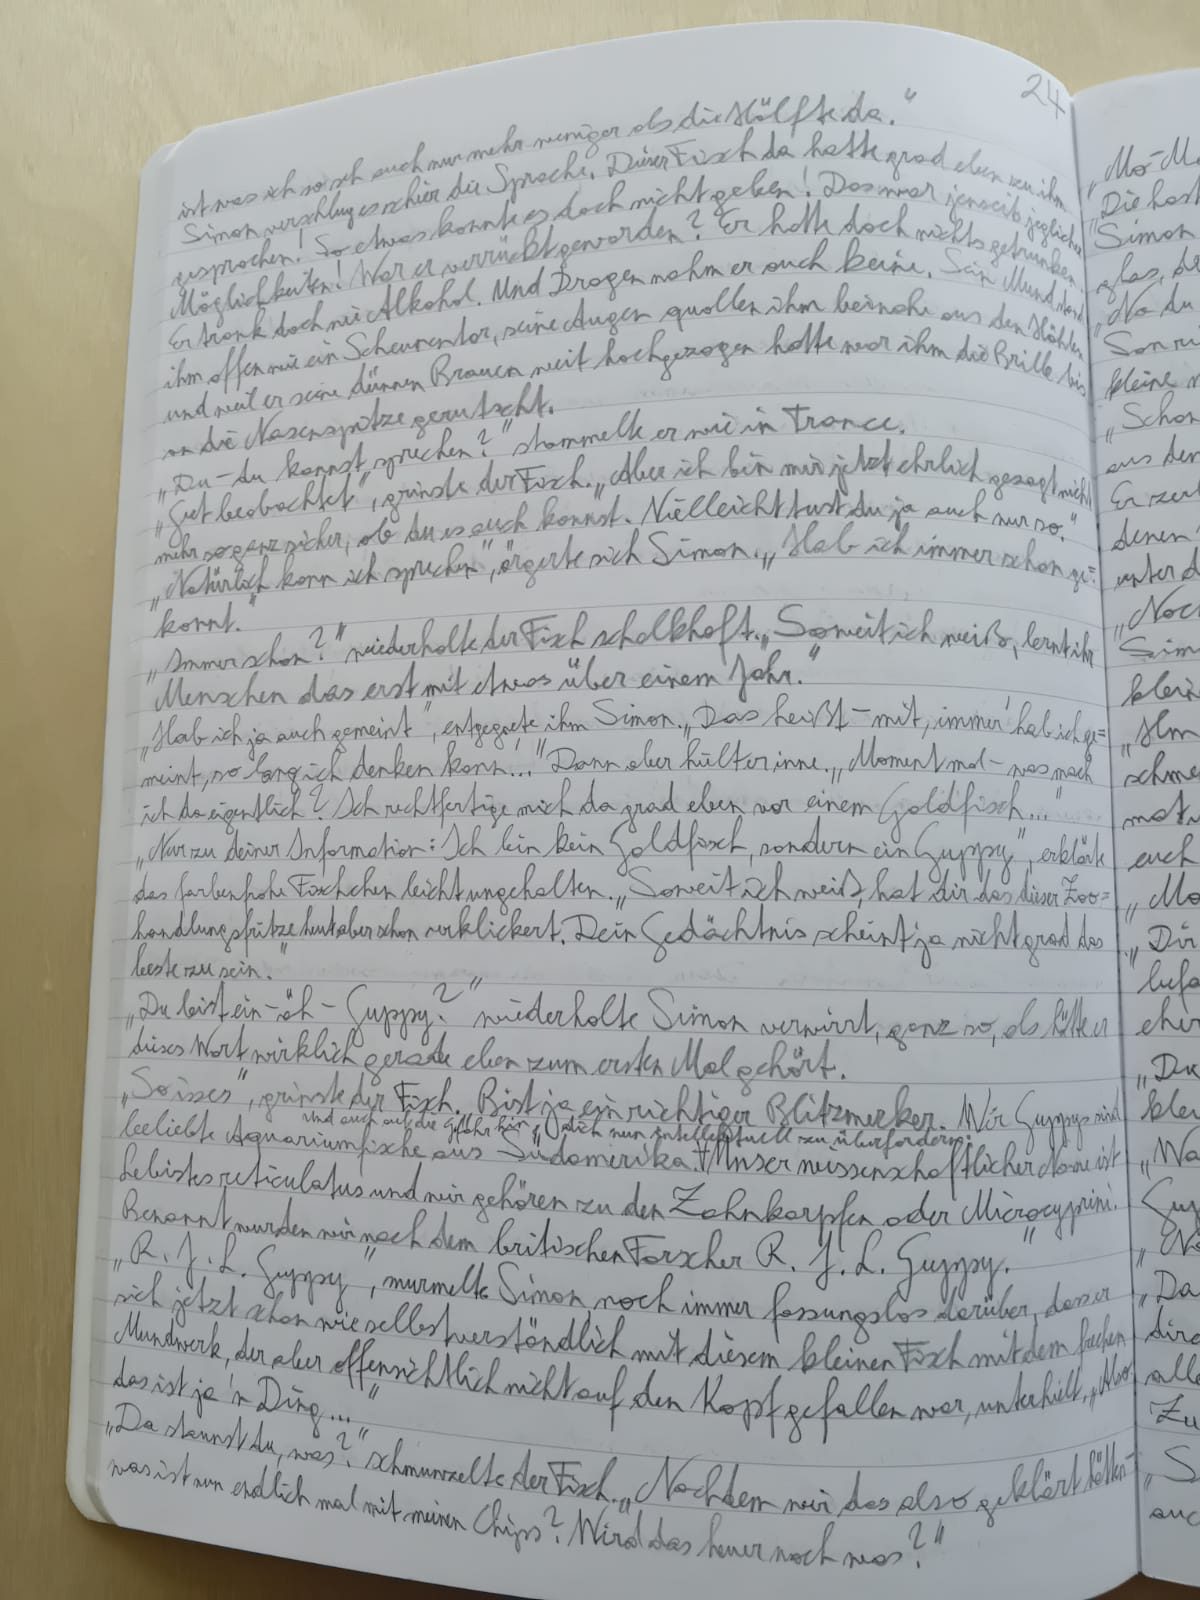 24
ist was ich so seh auch nur mehr weniger als die Hälfte da."
Simon verschlug es schier die Sprache. Dieser Fisch da hatte grad eben zu ihm
gesprochen! So etwas konnte es doch nicht geben! Das war jenseits jeglicher
Möglichkeiten! War er verrückt geworden? Er hatte doch nichts getrunken.
Er trank doch nie Alkohol. Und Drogen nahm er auch keine. Sein Mund stand
ihm offen wie ein Scheunentor, seine Augen quollen ihm beinahe aus den Höhlen
und weil er seine dünnen Brauen weit hochgezogen hatte war ihm die Brille bis
an die Nasenspitze gerutscht.
„Du – du kannst sprechen?" stammelte er wie in Trance.
„Gut beobachtet", grinste der Fisch. „Aber ich bin mir jetzt ehrlich gesagt nicht
mehr so ganz sicher, ob du es auch kannst. Vielleicht tust du ja auch nur so."
„Natürlich kann ich sprechen", ärgerte sich Simon. „Hab ich immer schon ge=
konnt."
„Immer schon?" wiederholte der Fisch schalkhaft. „Soweit ich weiß, lernt ihr
Menschen das erst mit etwas über einem Jahr."
„Hab ich ja auch gemeint", entgegnete ihm Simon. „Das heißt – mit ‚immer' hab ich ge=
meint, so lang ich denken kann..." Dann aber hielt er inne. „Moment mal – was mach
ich da eigentlich? Ich rechtfertige mich da grad eben vor einem Goldfisch..."
„Nur zu deiner Information: Ich bin kein Goldfisch, sondern ein Guppy", erklärte
das farbenfrohe Fischchen leicht ungehalten. „Soweit ich weiß, hat dir das dieser Zoo=
handlungsfritze heut aber schon verklickert. Dein Gedächtnis scheint ja nicht grad das
beste zu sein."
„Du bist ein – äh – Guppy?" wiederholte Simon verwirrt, ganz so, als hätte er
dieses Wort wirklich gerade eben zum ersten Mal gehört.
„So isses", grinste der Fisch. „Bist ja ein richtiger Blitzmerker. Wir Guppys sind
und auch auf die Gefahr hin, dich nun intellektuell zu überfordern:
beliebte Aquariumfische aus Südamerika. Unser wissenschaftlicher Name ist
Lebistes reticulatus und wir gehören zu den Zahnkarpfen oder Microcyprini.
Benannt wurden wir nach dem britischen Forscher R. J. L. Guppy."
„R. J. L. Guppy", murmelte Simon noch immer fassungslos darüber, dass er
sich jetzt schon wie selbstverständlich mit diesem kleinen Fisch mit dem frechen
Mundwerk, der aber offensichtlich nicht auf den Kopf gefallen war, unterhielt. „Also
das ist ja 'n Ding..."
„Da staunst du, was?" schmunzelte der Fisch. „Nachdem wir das also geklärt hätten –
was ist nun endlich mal mit meinen Chips? Wird das heuer noch was?"